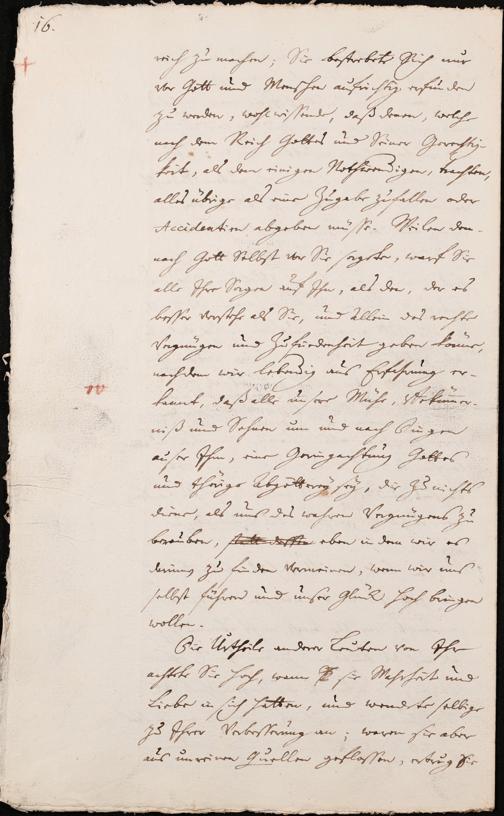 16.
reich zu machen; Sie bestrebete Sich nur
vor Gott und Menschen aufrichtig erfunden
zu werden, wohl wissende, daß denen, welche
nach dem Reich Gottes und Seiner Gerechtig-
keit, als dem einigen Nothwendigen, trachten,
alles übrige als eine Zugabe zufallen oder
Accidentien abgeben müsse. Weilen dem-
nach Gott Selbst vor Sie sorgete, warf Sie
alle Ihre Sorgen auf Ihn, als den, der es
besser verstehe als Sie, und allein das rechte
Vergnügen und Zufriedenheit geben könne,
nachdem wir lebendig aus Erfahrung er-
kannt, daß alle unsere Mühe, Bekümer-
niß und Sehnen um und nach Dingen
auser Ihm, eine Geringachtung Gottes
und thörige Abgötterey sey, die zu nichts
diene, als uns des wahren Vergnügens zu
berauben, statt dessen eben in dem wir es
darinn zu finden vermeinen, wenn wir uns
selbst führen und unser Glück hoch bringen
wollen.
Die Urtheile anderer Leuten von Ihr
achtete Sie hoch, wann sie Wahrheit und
Liebe in sich hatten, und wendete selbige
zu Ihrer Verbesserung an; waren sie aber
aus unreinen Quellen geflossen, ertrug Sie